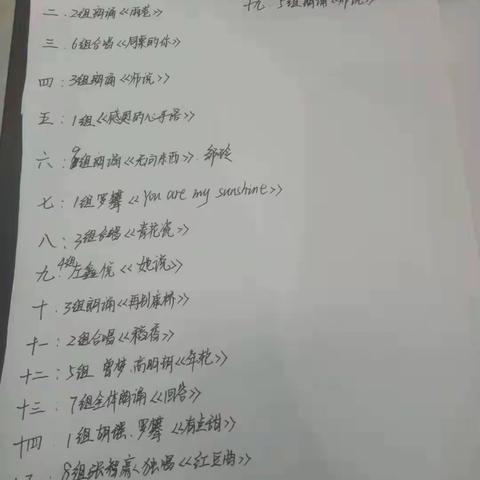 二：2组朗诵《雨巷》
十九：5组朗诵《师说》
三：6组合唱《同桌的你》
四：3组朗诵《师说》
五：1组《感恩的心手语》
六：9组朗诵《无问东西》邹玲
七：1组罗攀《You are my sunshine》
八：3组合唱《青花瓷》
九：4组左鑫悦《她说》
十：3组朗诵《再别康桥》
十一：2组合唱《稻香》
十二：5组 曾梦、《年轮》
十三：7组全体朗诵《回答》
十四：1组胡瑶、罗攀《有点甜》
8组张智 独唱《红豆曲》